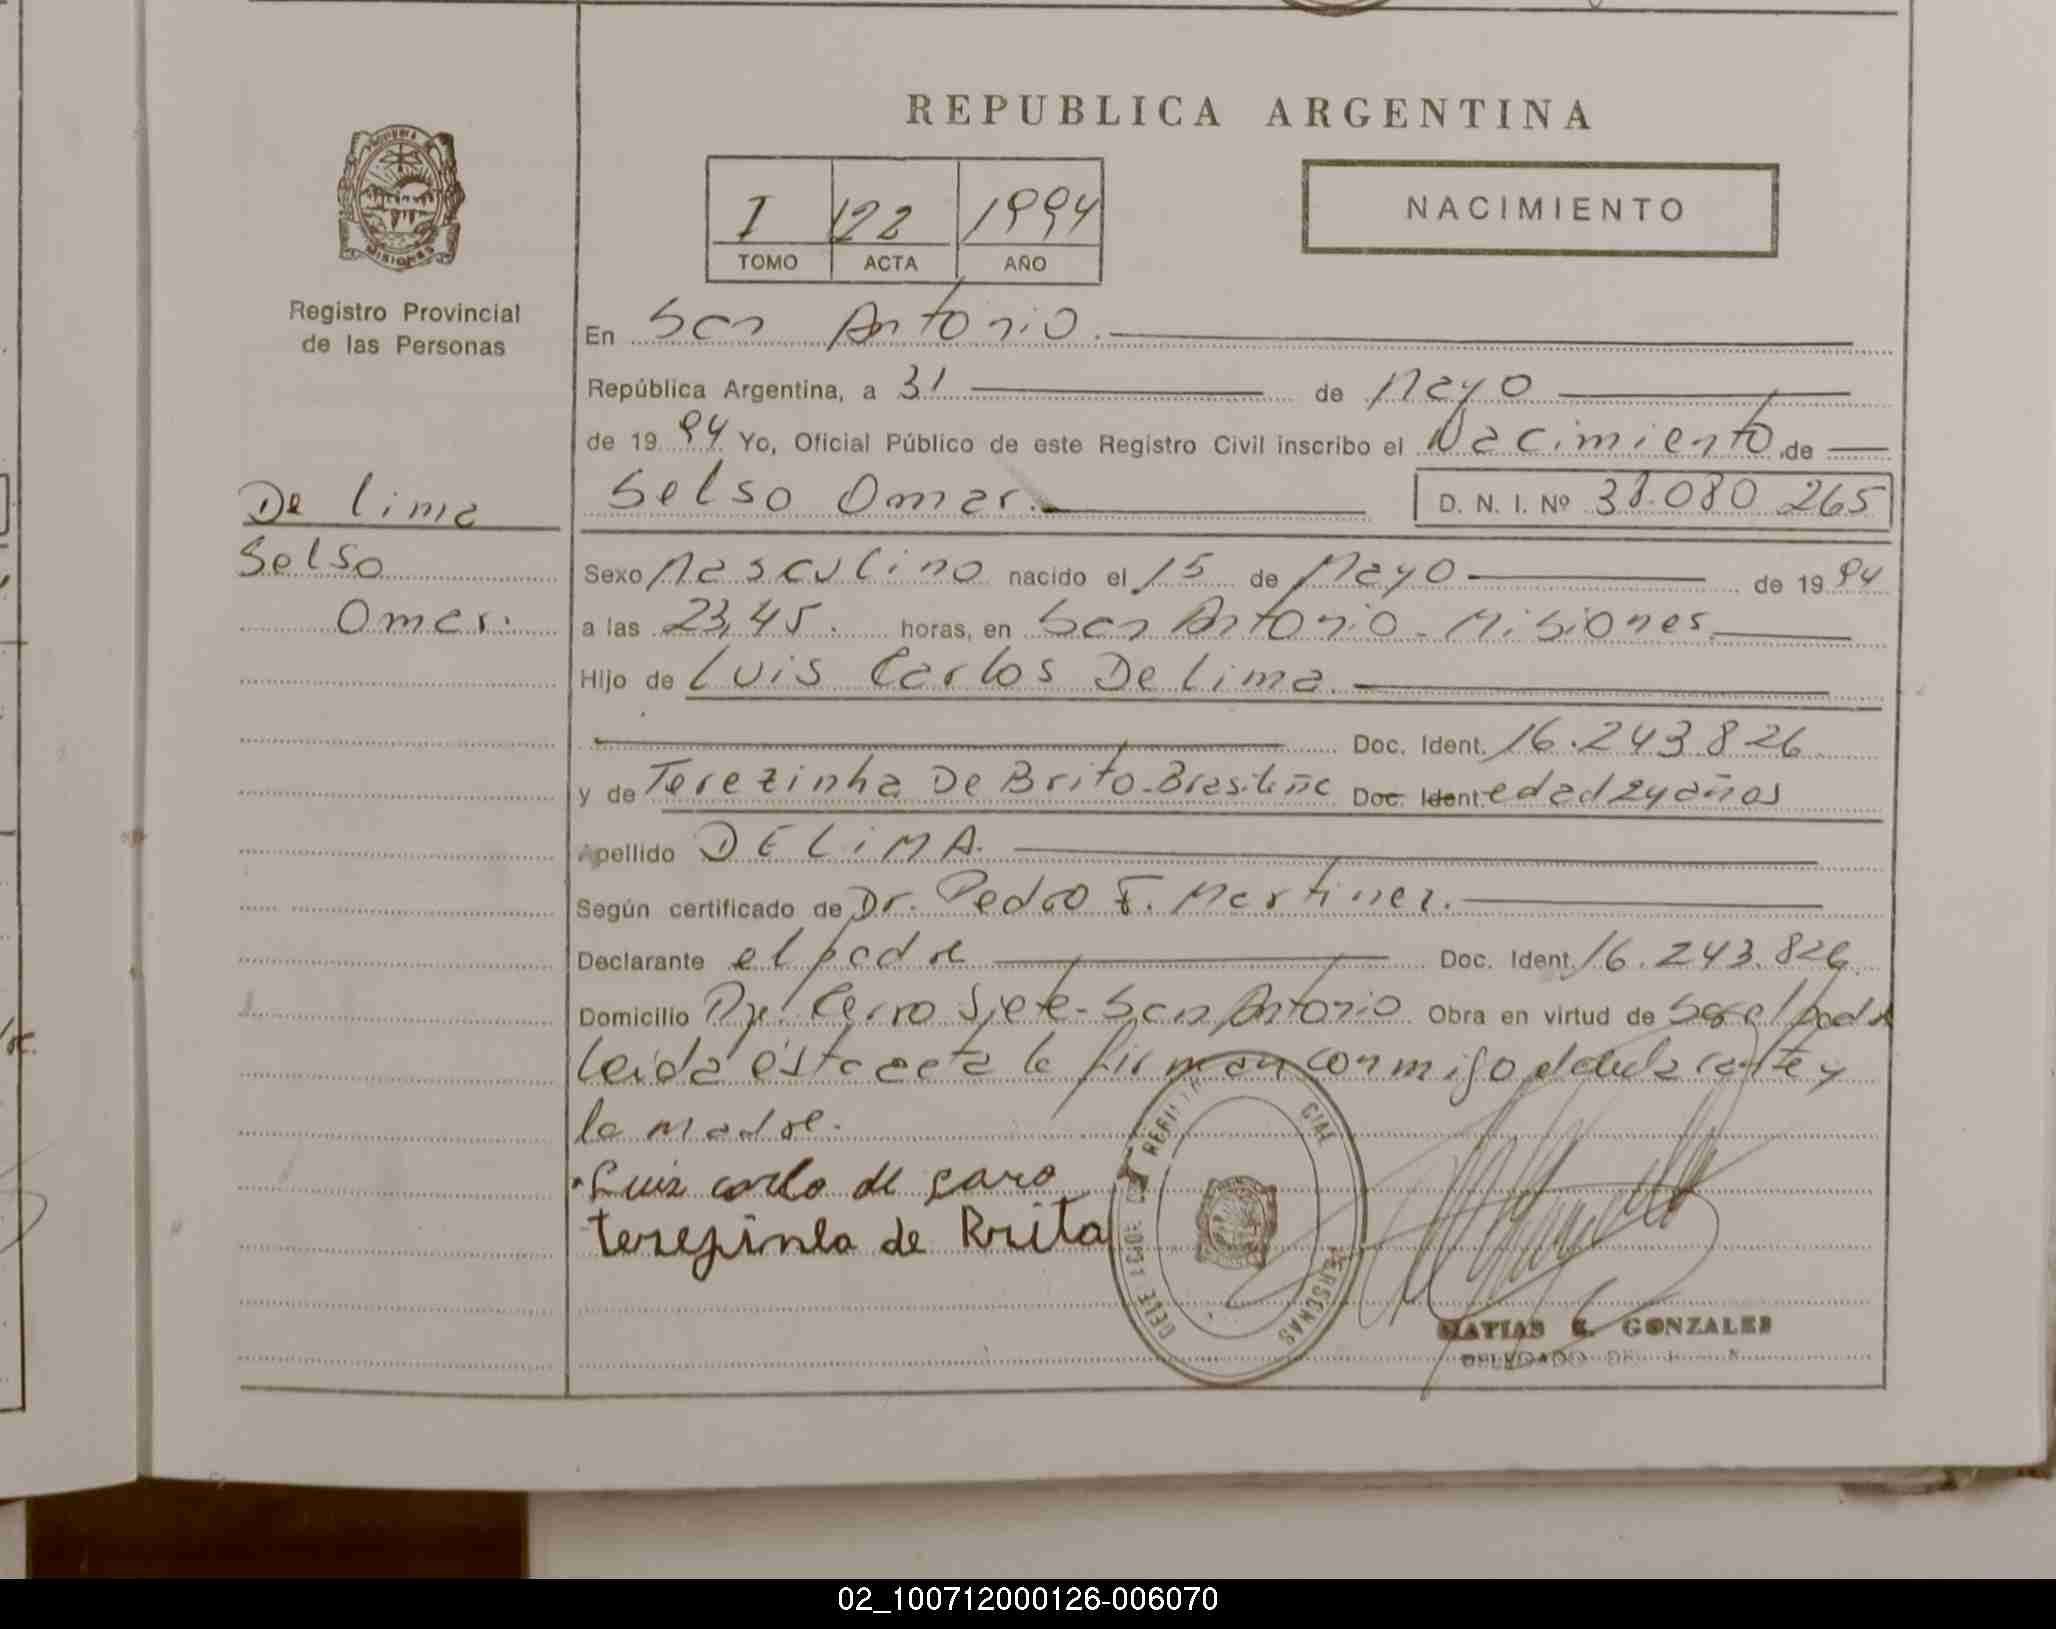 REPUBLICA ARGENTINA
I 122 1994
TOMO ACTA AÑO
NACIMIENTO
MISIONES
Registro Provincial
de las Personas
De lima
Selso
Omar.
En San Antonio.
República Argentina, a 31 de Mayo
de 1994 Yo, Oficial Público de este Registro Civil inscribo el Nacimiento de
Selso Omar. D. N. I. Nº 38.080.265
Sexo Masculino nacido el 15 de Mayo de 1994
a las 23,45. horas, en San Antonio - Misiones
Hijo de Luis Carlos De lima
Doc. Ident. 16.243.826
y de Terezinha De Brito - Brasileña Doc. Ident edad 24 años
Apellido DE LIMA.
Según certificado de Dr. Pedro F. Martinez.
Declarante el padre Doc. Ident. 16.243.826
Domicilio Pje. Cerro Siete - San Antonio Obra en virtud de ser el padre
leida ésta acta la firman conmigo el declarante y
la madre.
Luiz carlo de
terezinha de Brita
MATIAS GONZALES
DELEGADO
PERSONAS
02_100712000126-006070